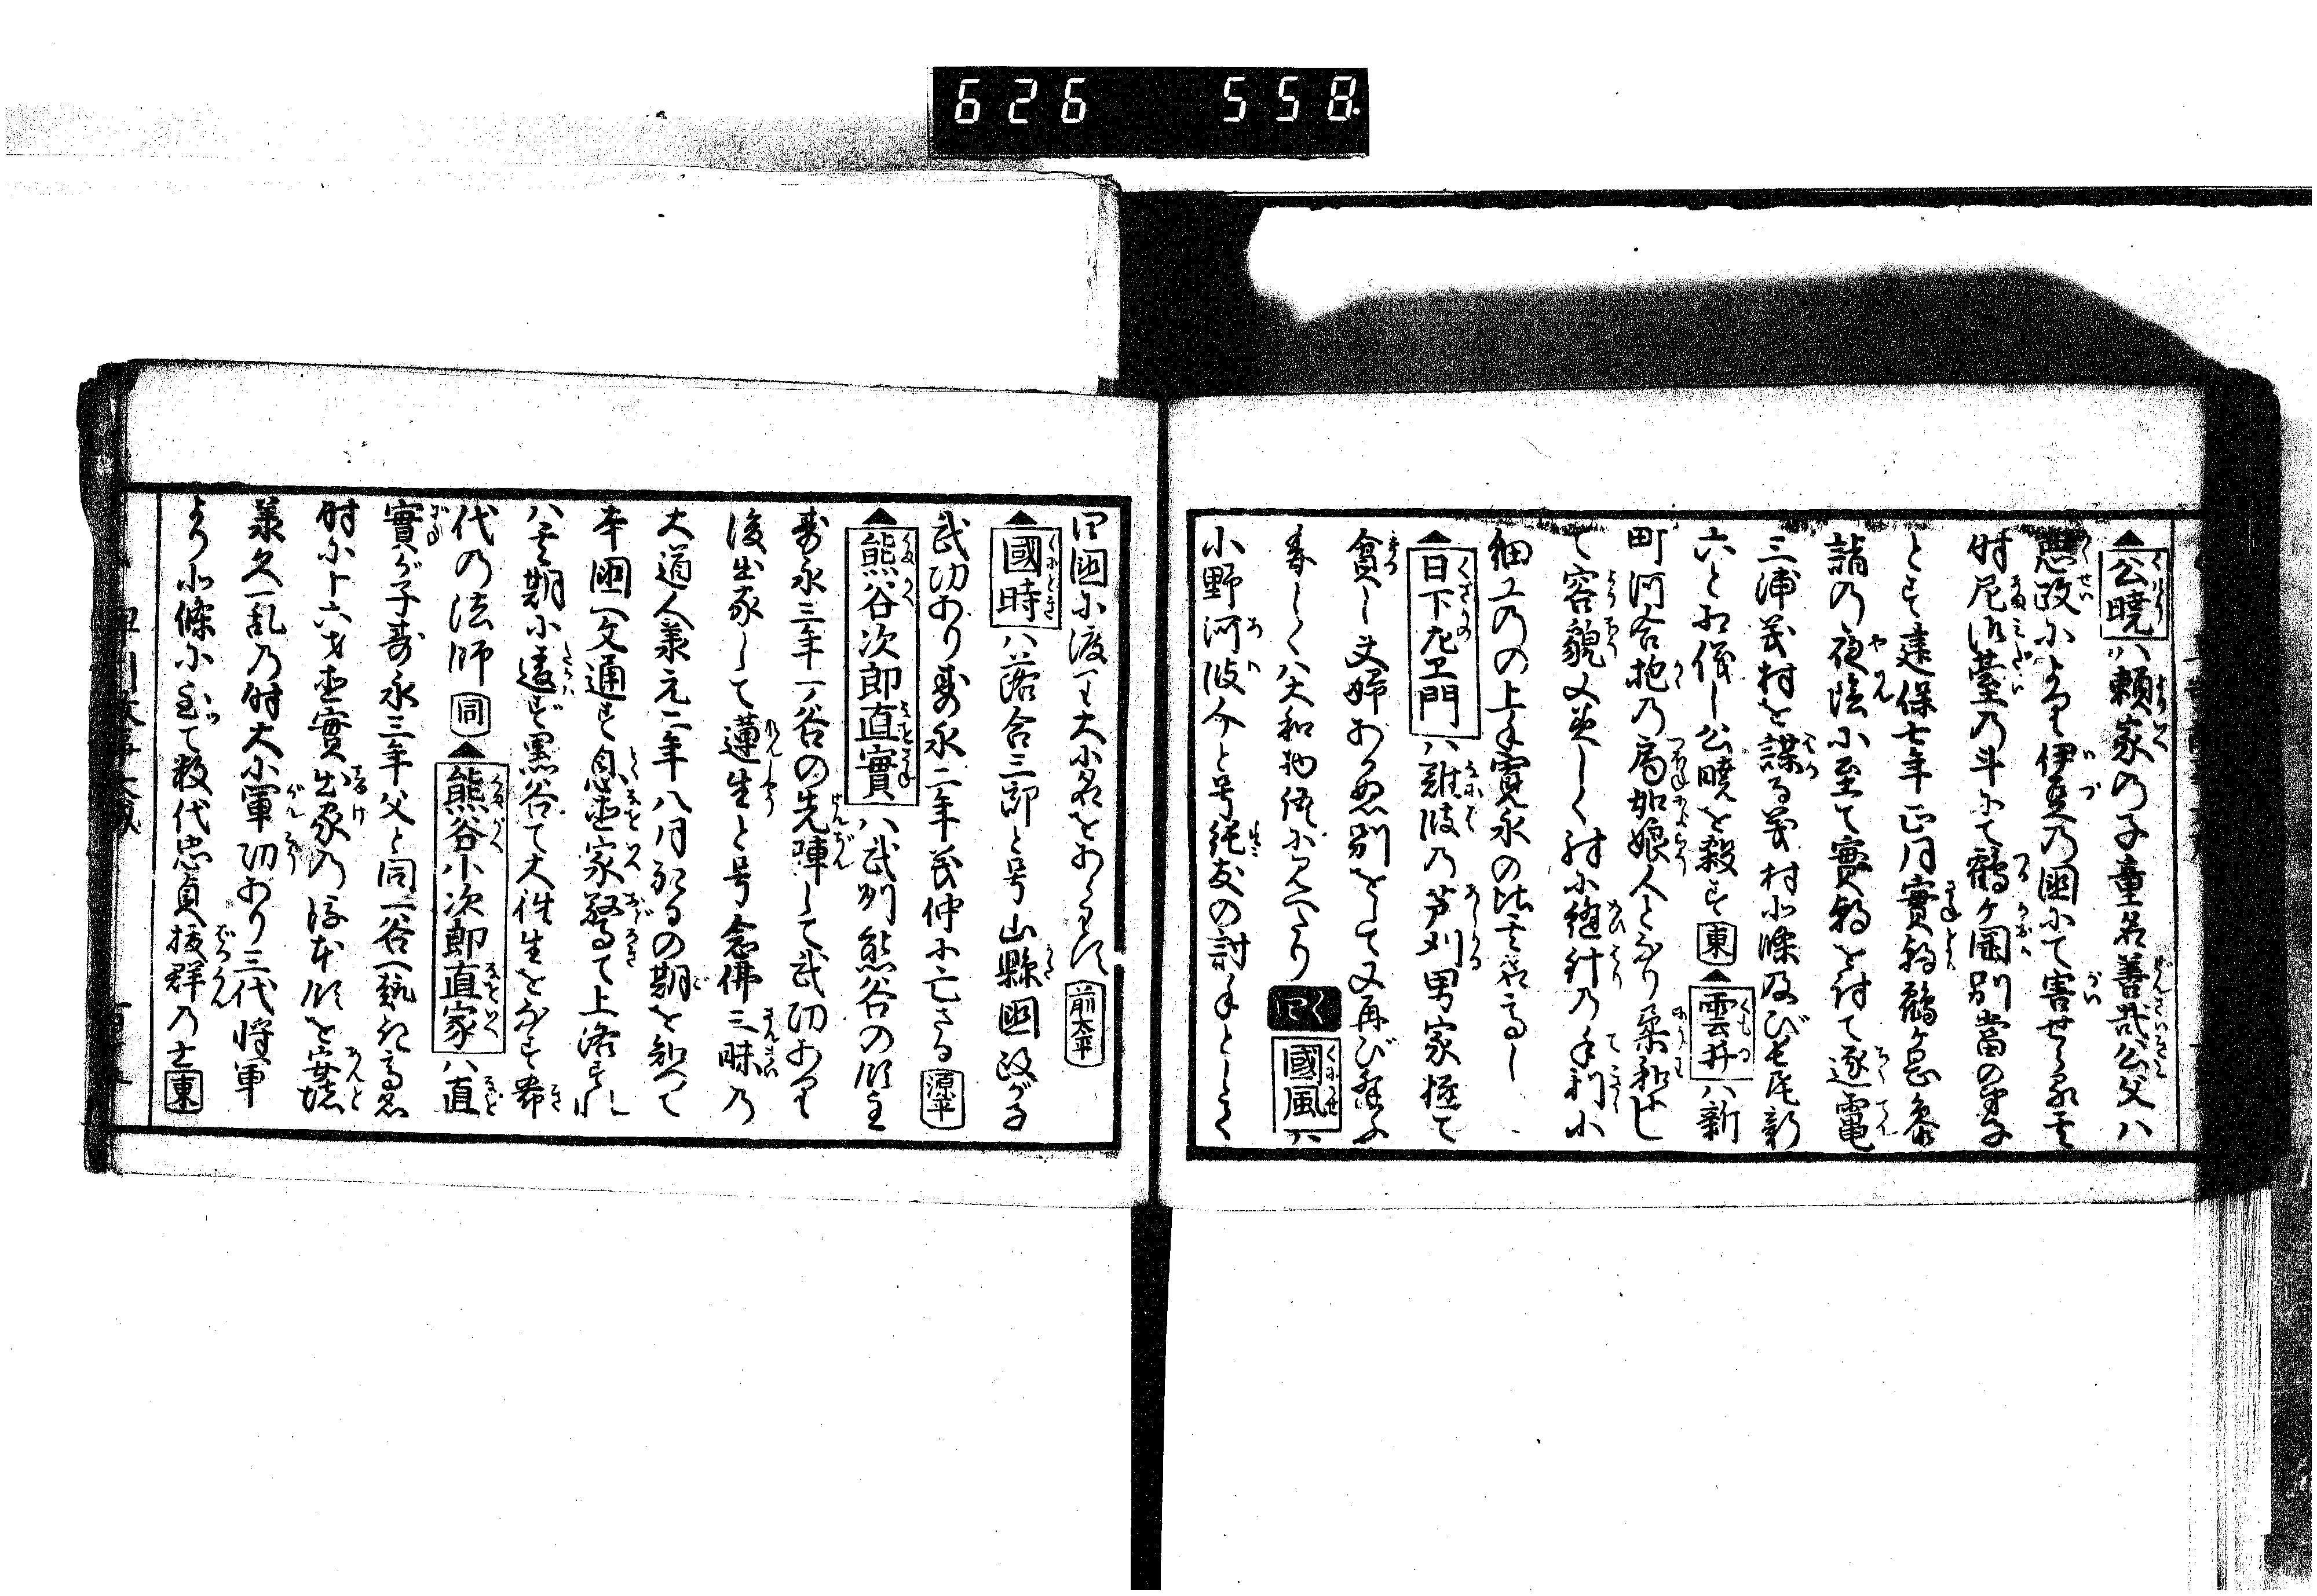 626 558.
▲公暁ハ頼家の子童名善哉公父ハ
悪政によりて伊豆の国にて害せらる其
時尼御臺の斗にて鶴ケ岡別當の弟子
とす建保七年正月實朝鶴ケ岳参
詣の夜陰に至て實朝を討て逐電
三浦義村を謀る義村北條及び長尾新
六と相儀し公暁を殺す 東 ▲雲井ハ新
町河合抱の局女郎娘人となり柔和にし
て容貌又美しく殊に縫針の手利小
細工の上手寛永の比其名高し
▲日下左エ門ハ難波の芦刈男家極て
貧し夫婦あかぬ別をして又再び
ハ大和物語に見へたり く 國風ハ
小野阿波介と号純友の討手として
四国に渡りて大小名を 前太平
▲國時ハ落合三郎と号山縣国政が子
武功あり寿永二年義仲に亡さる 源平
▲熊谷次郎直實ハ武刕熊谷の領主
寿永三年一ノ谷の先陣して武功あり
後出家して蓮生と号念佛三昧の
大道人承元二年八月死るの期を知て
本国へ文通す息直家驚て上洛す
ハ其期に違ず黒谷て大往生をなす希
代の法師 同 ▲熊谷小次郎直家ハ直
實が子寿永三年父と同一谷へ
時に十六才直實出家の後本領を安堵
承久一乱の時大に軍功あり三代将軍
より北條に至て数代忠貞抜群の士 東